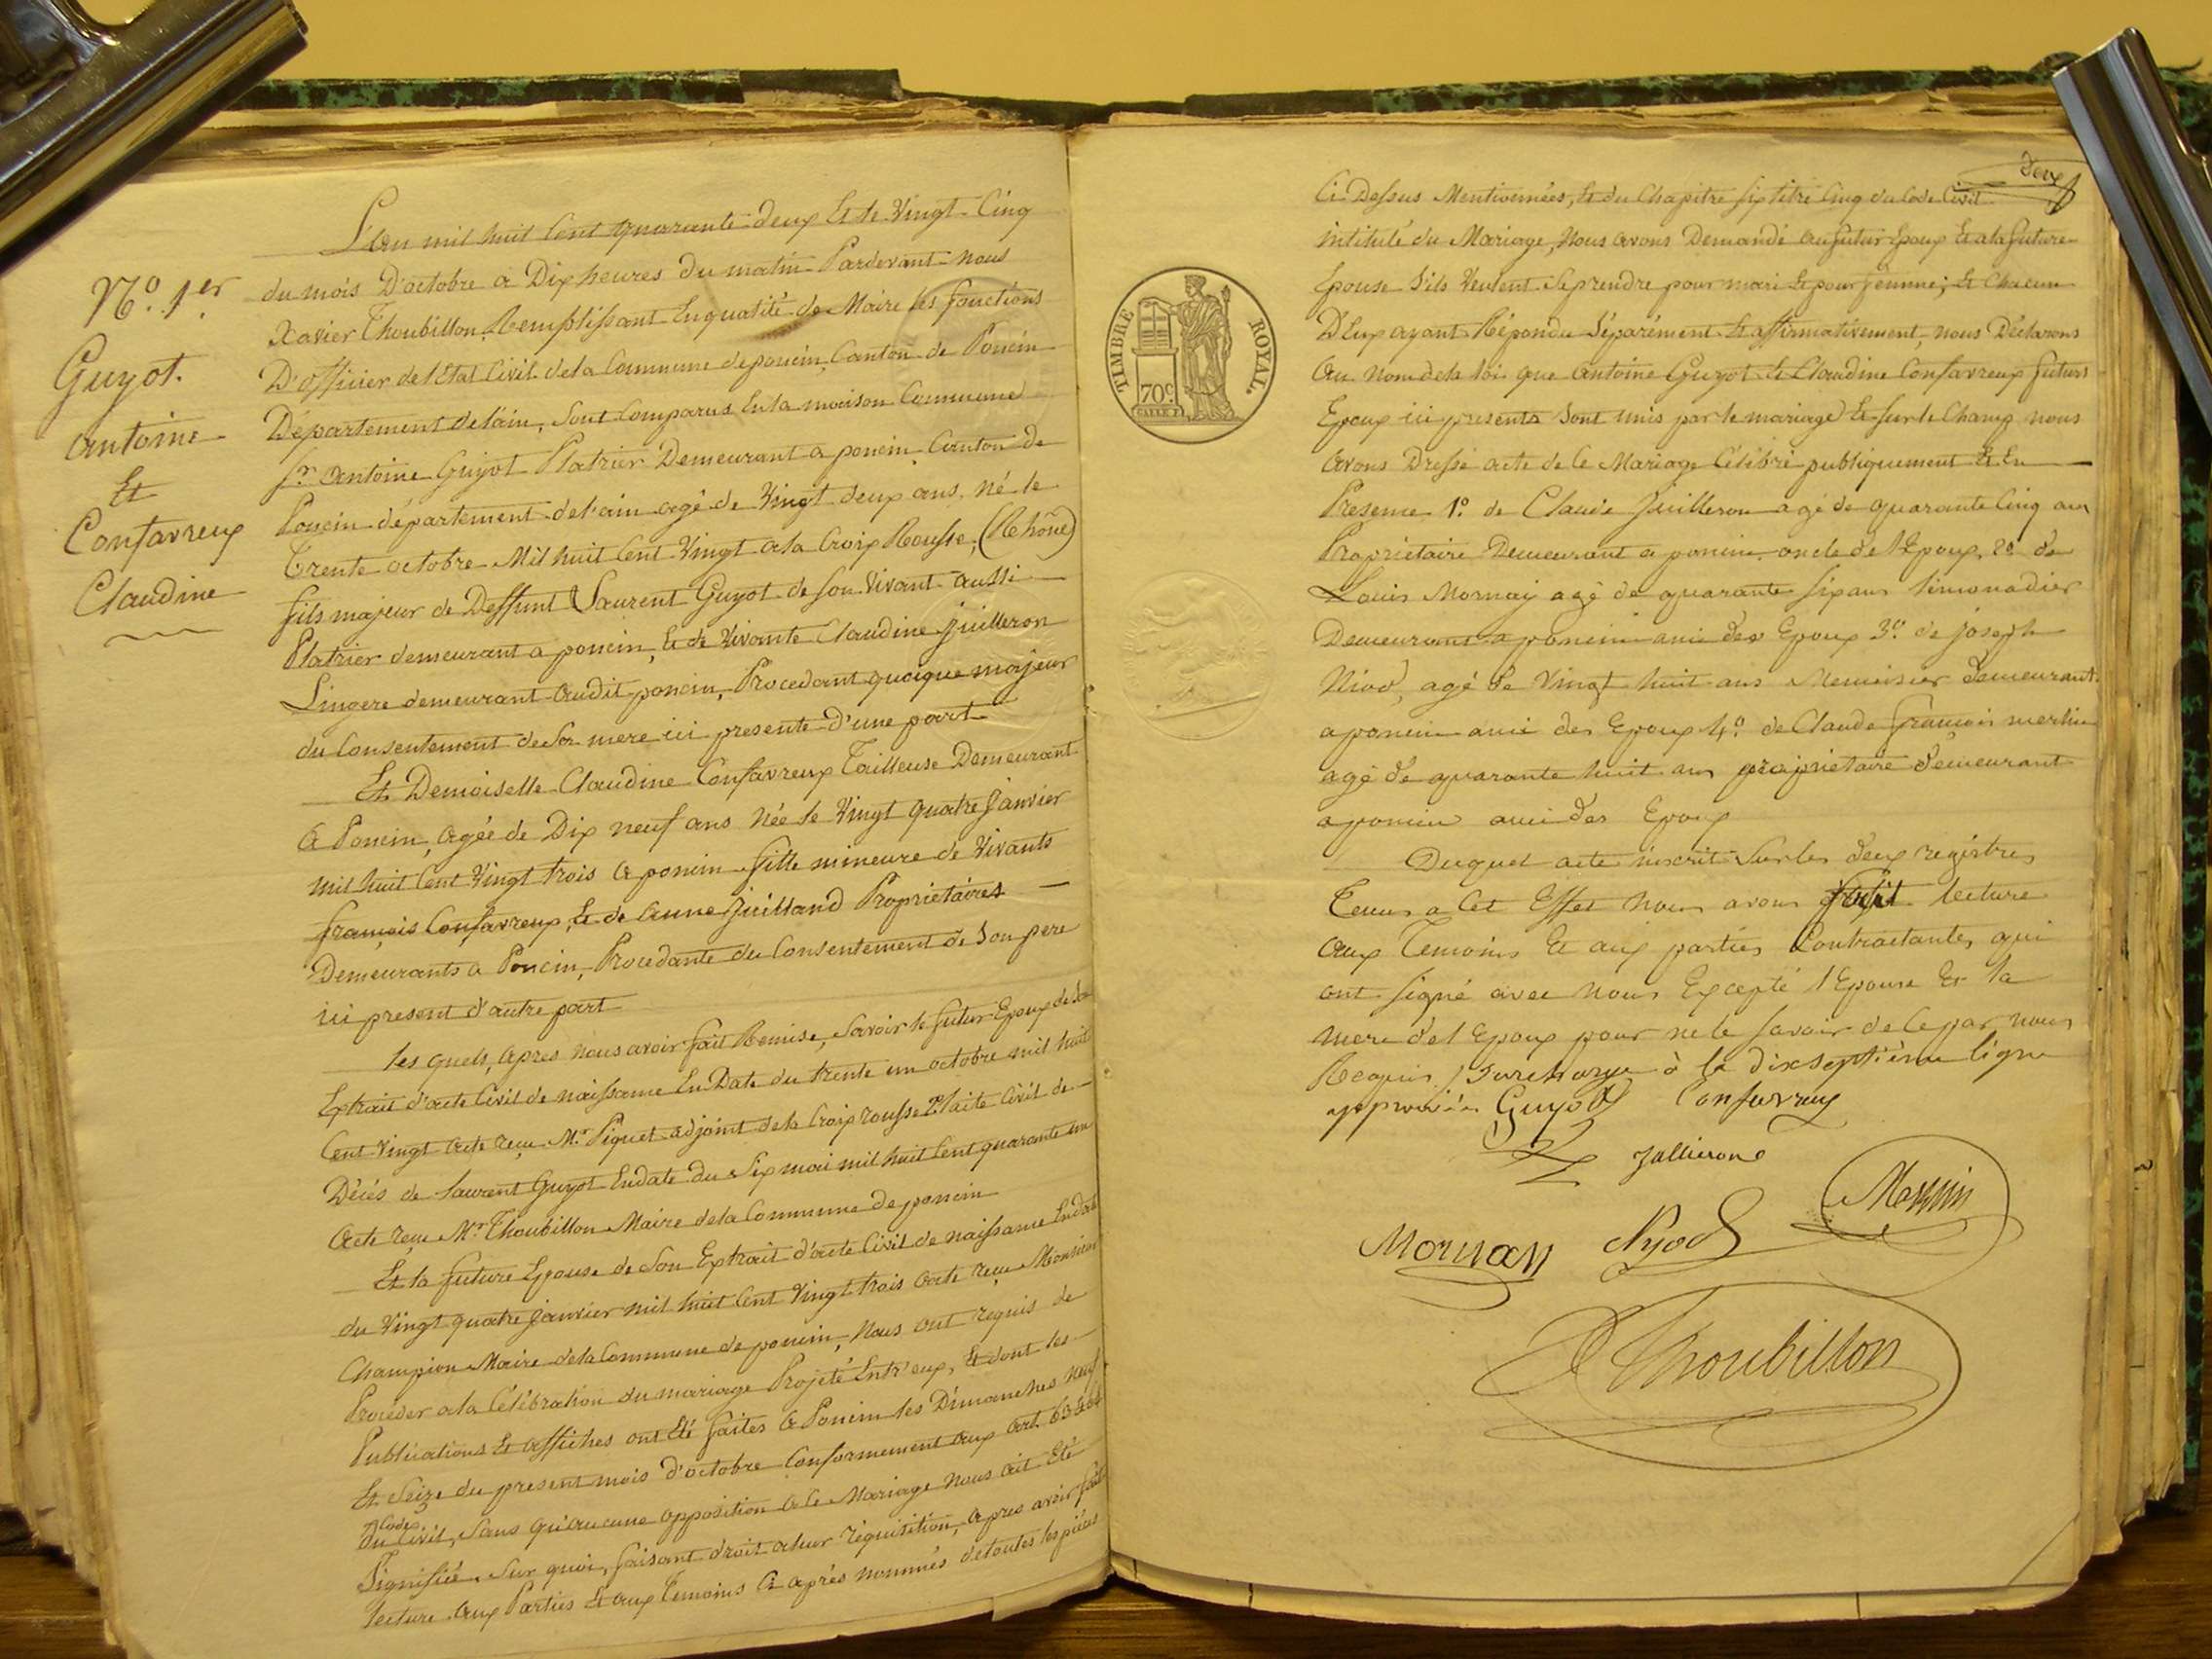 N.o 1er
Guyot.
antoine
Et
Confavreux
Claudine
L'an mil huit Cent quarante deux Et le Vingt Cinq
du mois D'octobre a Dix heures du matin Pardevant nous
Xavier Thoubillon, Remplissant Enqualité de Maire les fonctions
D'officier del Etat Civil dela Commune deponcin, Canton de Poncin
Département delain, Sont Comparus Enla maison Commune
Sr. Antoine Guyot Platrier Demeurant a poncin Canton de
Poncin département del'ain agé de Vingt deux ans, né le
Trente octobre Mil huit Cent Vingt ala Croix Rousse, (Rhône)
fils majeur de Deffunt Laurent Guyot de son Vivant aussi
Platrier demeurant a poncin, Et de Vivante Claudine Juilleron
Lingere demeurant audit poncin, Procedant quoique majeur
du Consentement de Sa mere ici presente d'une part
Et Demoiselle Claudine Confavreux Tailleuse Demeurant
A Poncin, agée de Dix neuf ans Née le Vingt quatre Janvier
mil huit Cent Vingt trois a poncin fille mineure de Vivants
françois Confavreux, Et de Anne Juilland Propriétaires
Demeurants a Poncin, Procedante du Consentement de Son pere
ici present d'autre part
les quels, apres nous avoir fait Remise, Savoir le futur Epoux de Son
Extrait d'acte Civil de naissance En Date du trente un octobre mil huit
Cent Vingt acte reçu Mr. Piquet adjoint dela Croix rousse 2o. l'acte Civil de
Décés de Laurent Guyot Endate du Six mai mil huit Cent quarante un
Acte reçu Mr Thoubillon Maire dela Commune deponcin
Et la future Epouse de Son Extrait d'acte Civil de naissance Endate
du Vingt quatre janvier mil huit Cent Vingt trois acte reçu Monsieur
Champion Maire dela Commune de poncin, Nous ont requis de
Procéder ala Célébration du mariage Projeté Entr'eux, Et dont les
Publications Et affiches ont Eté faites A Poncin les Dimanches neuf
Et Seize du present mois d'octobre Conformement aux art. 63 & 64
Code
du Civil, Sans qu'aucune opposition a Ce Mariage nous ait Eté
Signifié. Sur quoi, faisant droit aleur réquisition, apres avoir fait
lecture aux Parties Et aux Temoins Ci après nommés detoutes les pièces
deux
Ci Dessus Mentionnées, Et du Chapitre six titre Cinq du Code Civil
intitulé du Mariage, Nous avons Demandé au futur Epoux Et ala future
Epouse S'ils Veulent Seprendre pour mari Et pour femme; Et Chacun
D'Eux ayant Répondu Séparément Et affirmativement, nous Déclarons
Au Nom dela loi que Antoine Guyot Et Claudine Confavreux futurs
Epoux ici presents Sont unis par le mariage Et sur le Champ nous
Avons Dressé acte de Ce Mariage Célébré publiquement Et En
Présence 1.o de Claude Juilleron agé de quarante Cinq ans
Propriétaire Demeurant a poncin oncle de l'Epoux, 2o. de
Louis Mornay agé de quarante six ans limonadier
Demeurant a poncin ami des Epoux 3.o de joseph
Niod, agé de Vingt huit ans Menuisier demeurant
a poncin ami des Epoux 4.o de Claude françois merlin
agé de quarante huit ans propriétaire demeurant
a poncin ami des Epoux
Duquel acte inscrit Sur les deux registres
Tenus a Cet Effet Nous avons fait lecture
Aux Temoins Et aux parties Contractantes qui
ont signé avec Nous Excepté l'Epouse Et la
mere de l'Epoux pour ne le Savoir de Ce par nous
Requis / surcharge à la dixseptième ligne
approuvée Guyot Confavreux
Jullieron
Niod
Thoubillon
TIMBRE ROYAL.
70c